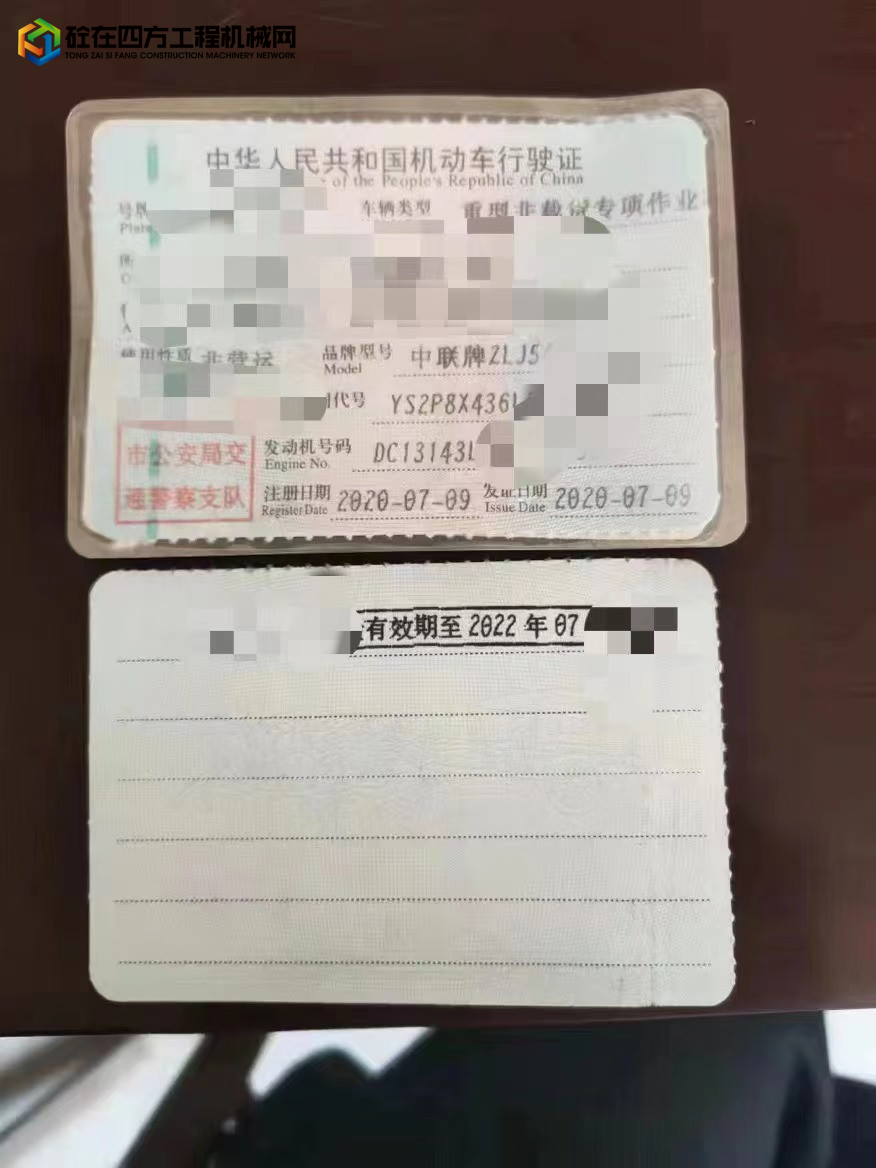 砼在四方工程机械网
TONG ZAI SI FANG CONSTRUCTION MACHINERY NETWORK
中华人民共和国机动车行驶证
of the People's Republic of China
号牌
Plate
车辆类型 重型非载货专项作业
使用性质 非营运
品牌型号 中联牌ZLJ5
Model
代号 YS2P8X436
市公安局交
通警察支队
发动机号码 DC13143L
Engine No.
注册日期 2020-07-09 发证日期 2020-07-09
Register Date Issue Date
有效期至 2022 年 07